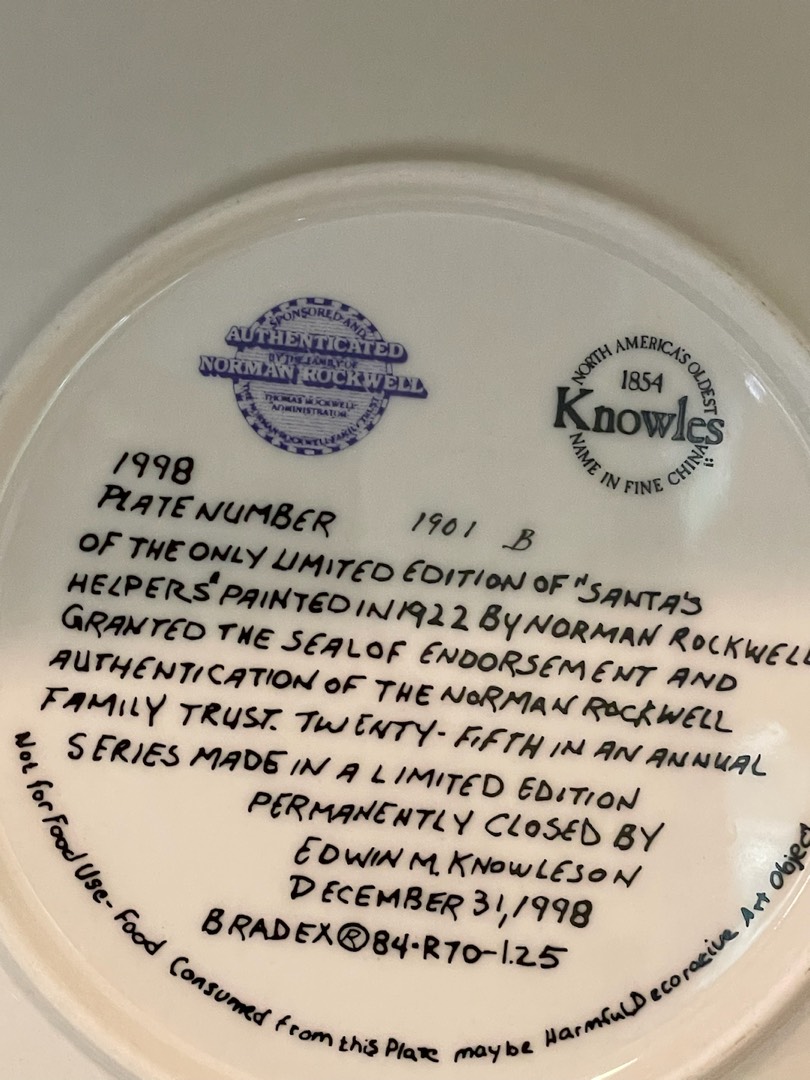 SPONSORED AND
AUTHENTICATED
BY THE FAMILY OF
NORMAN ROCKWELL
THOMAS ROCKWELL
ADMINISTRATOR
THE NORMAN ROCKWELL FAMILY TRUST
NORTH AMERICA'S OLDEST
1854
Knowles
NAME IN FINE CHINA
1998
PLATE NUMBER 1901 B
OF THE ONLY LIMITED EDITION OF "SANTA'S
HELPERS" PAINTED IN 1922 BY NORMAN ROCKWELL
GRANTED THE SEAL OF ENDORSEMENT AND
AUTHENTICATION OF THE NORMAN ROCKWELL
FAMILY TRUST. TWENTY-FIFTH IN AN ANNUAL
SERIES MADE IN A LIMITED EDITION
PERMANENTLY CLOSED BY
EDWIN M. KNOWLES ON
DECEMBER 31, 1998
BRADEX®84-R70-1.25
Not for Food Use - Food Consumed from this Plate may be Harmful. Decorative Art Object